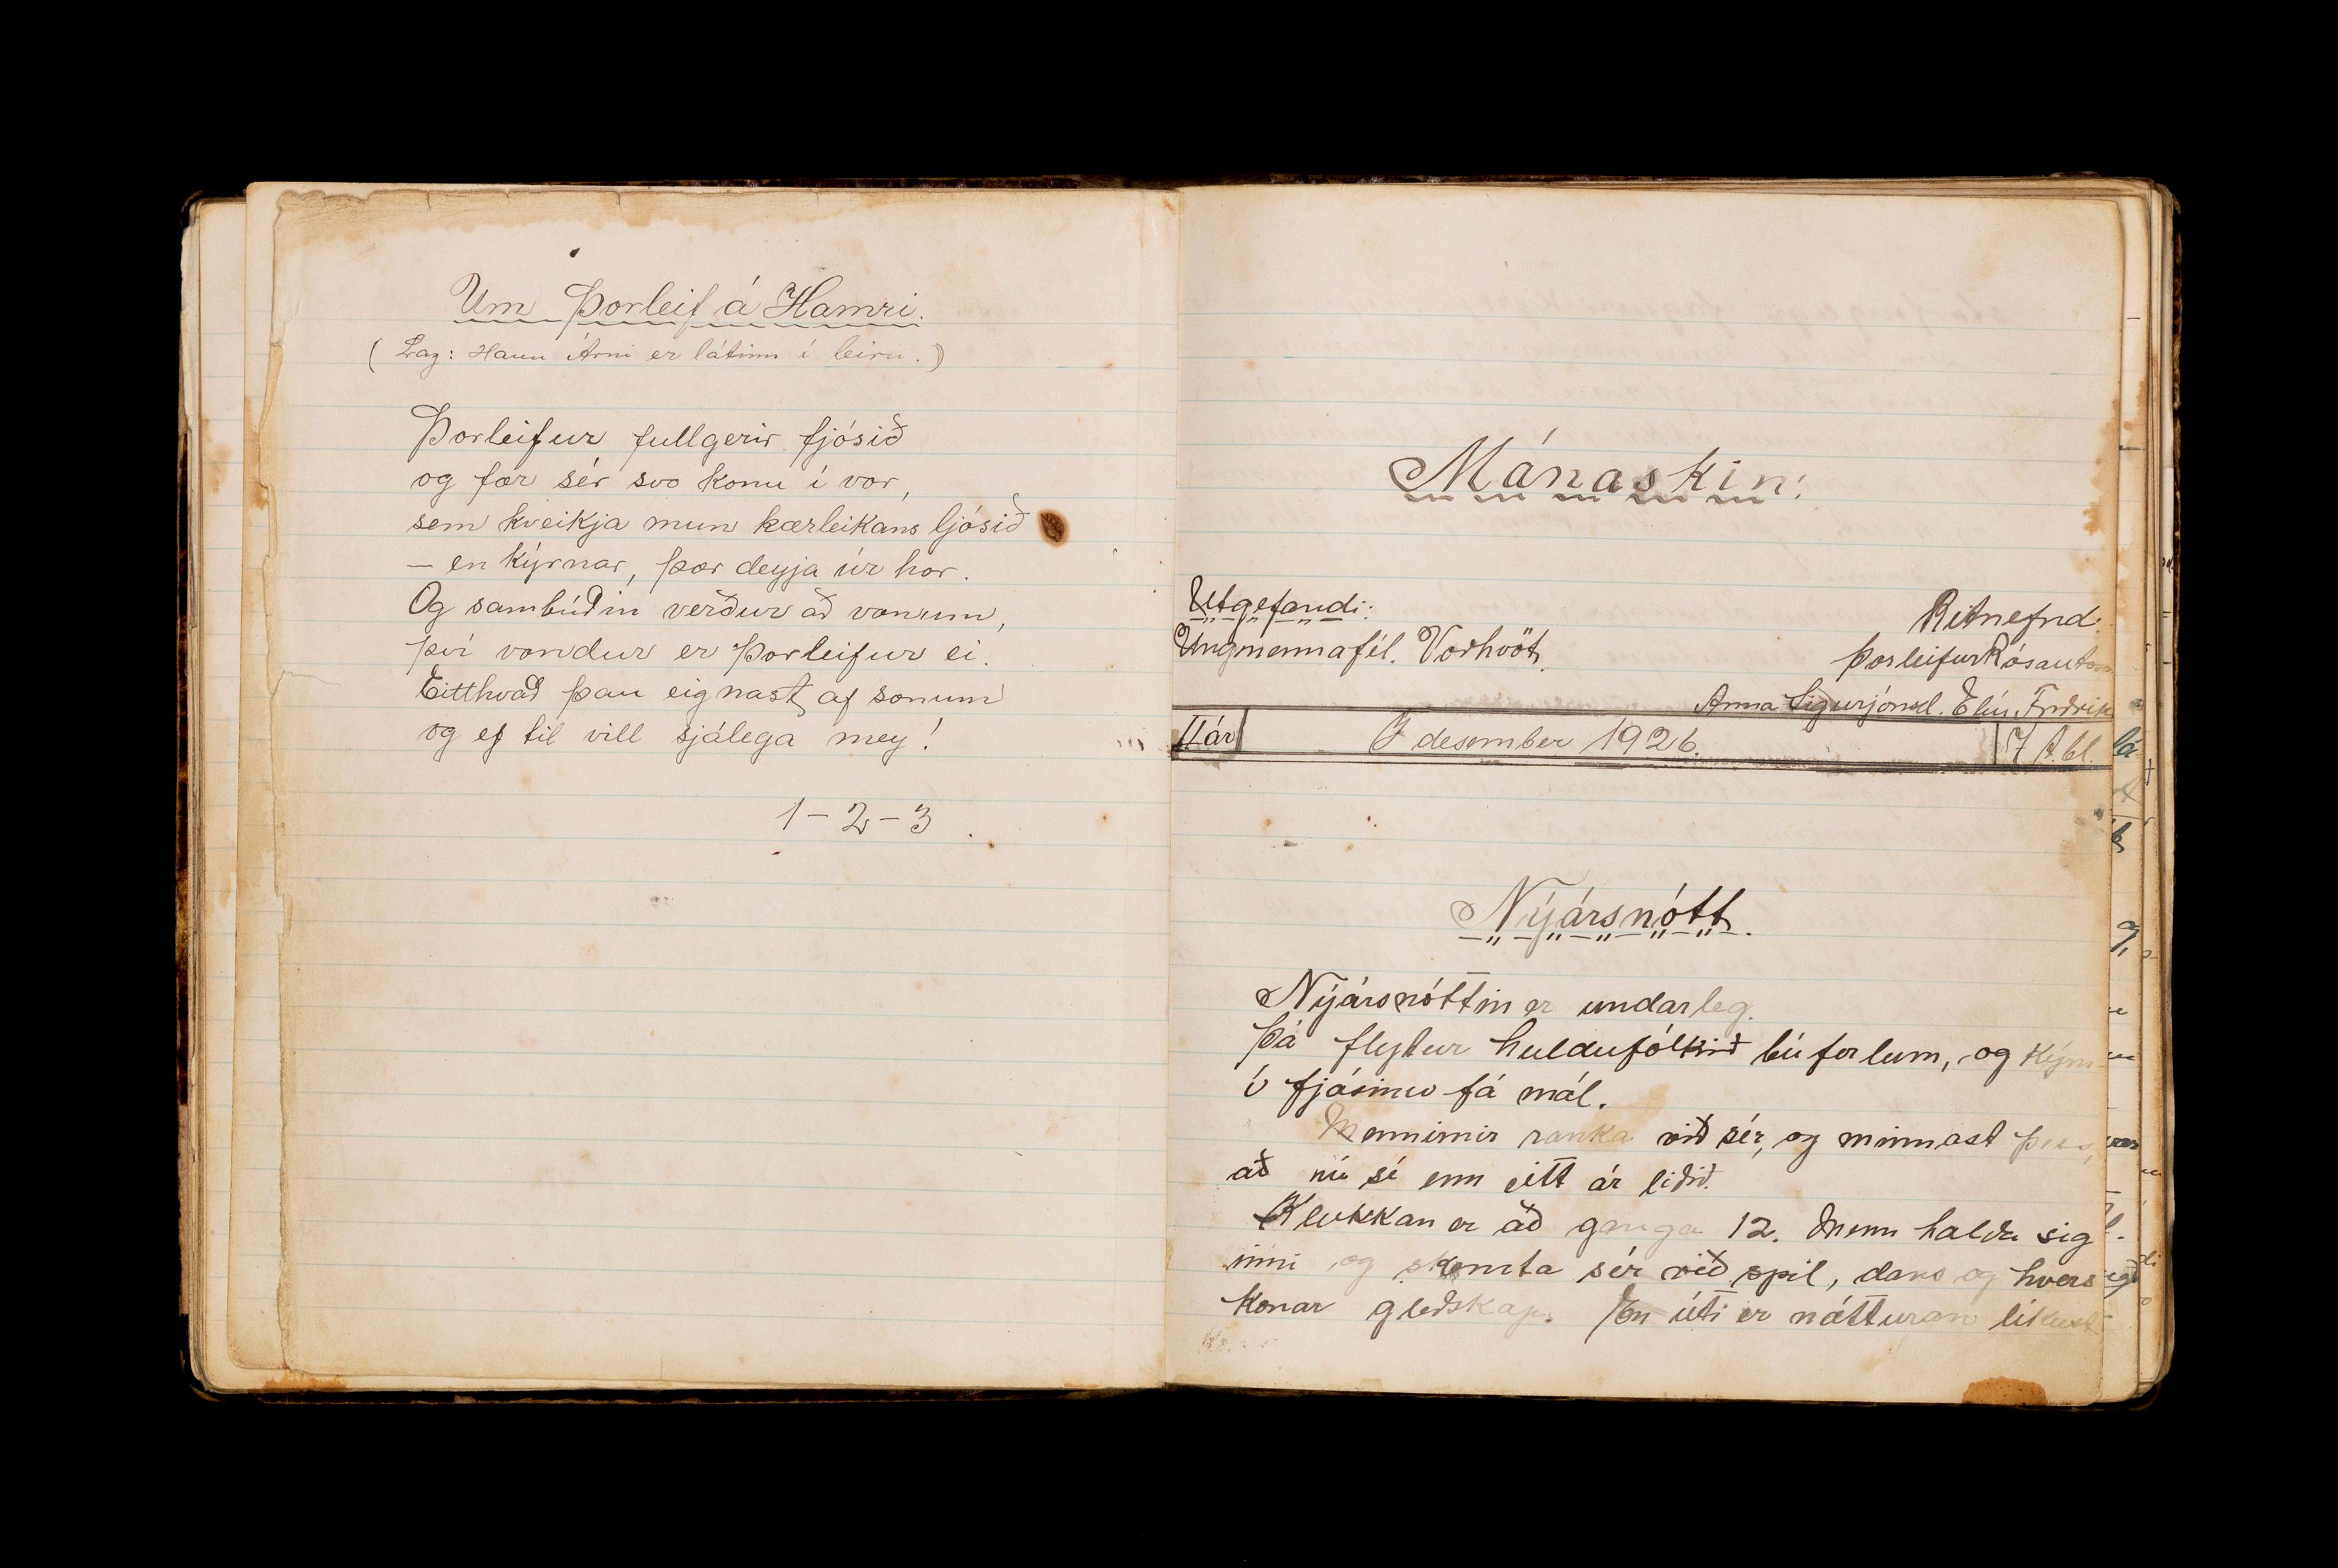 Um Þorleif á Hamri.
(Lag: Hann Árni er látinn í leiru.)
Þorleifur fullgerir fjósið
og fær sér svo konu í vor,
sem kveikja mun kærleikans ljósið
– en kýrnar, þær deyja úr hor.
Og sambúðin verður að vonum,
því vondur er Þorleifur ei.
Eitthvað þau eignast af sonum
og ef til vill sjálega mey!
1-2-3.
Mánaskin:
Útgefandi:
Ungmennafél. Vorhvöt.
Ritnefnd:
Þorleifur Rósants
Anna Sigurjónsd. Elín Friðrik
II ár
desember 1926.
7. tbl.
Nýársnótt.
Nýársnóttin er undarleg.
Þá flytur huldufólkið búferlum, og kýrn
í fjósinu fá mál.
Mennirnir ranka við sér, og minnast þess,
að nú sé enn eitt ár liðið.
Klukkan er að ganga 12. Menn halda sig
inni og skemta sér við spil, dans og hvers
konar gleðskap. En úti er náttúran líkust